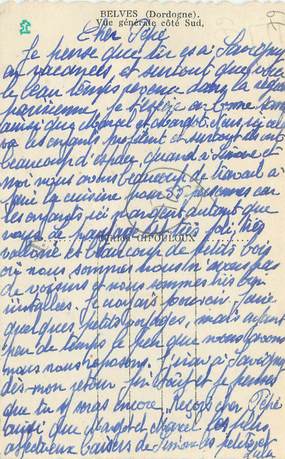 BELVES (Dordogne).
Vue générale côté Sud.
79
Cher Pépé,
Je pense que tu es à Savigny
en vacances et surtout que
le beau temps dans la région
parisienne. Je t'espère en bonne santé
ainsi que Marcel et Margot. Ici
les enfants profitent et surtout ils ont
beaucoup d'espace quand à Simone et
moi nous avons beaucoup de travail à
la cuisine pour 35 personnes car
les enfants ici mangent autant que
nous. Le paysage est très joli, très
vallonné et beaucoup de petits bois
où nous sommes nous n'avons pas
de voisins et nous sommes très bien
installées. Je croyais pouvoir faire
quelques petits voyages, mais ayant
peu de temps le peu que nous avons
nous nous reposons. J'irai à Savigny
dès mon retour fin Août et je pense
que tu y seras encore. Reçois cher Pépé
ainsi que Margot et Marcel les plus
affectueux baisers de Simone les petits et
Lulu